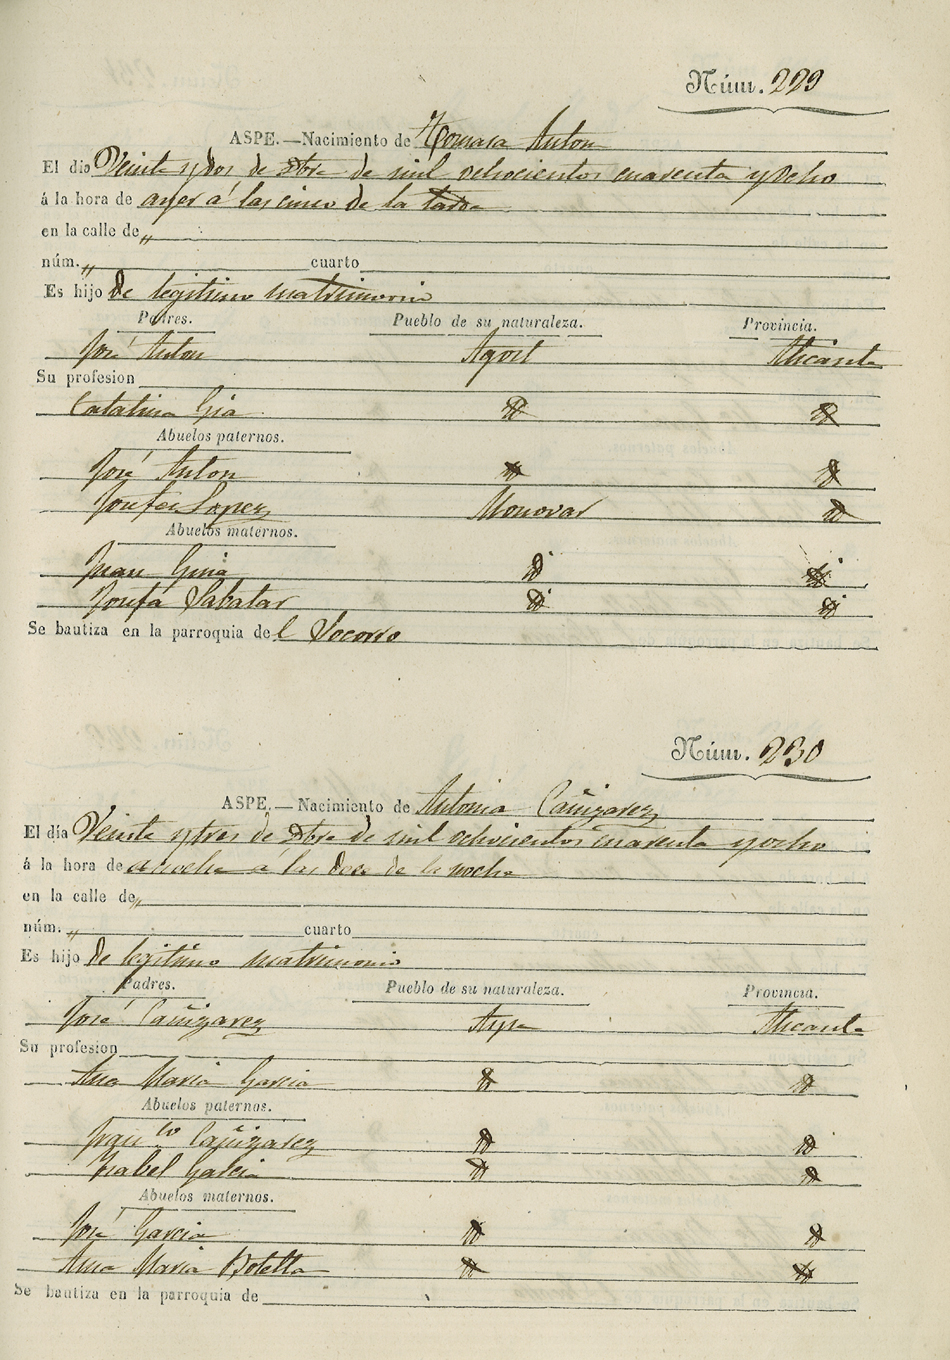 Núm. 229
ASPE.—Nacimiento de Tomasa Anton
El dia Veinte y dos de de mil ochocientos cuarenta y ocho
á la hora de ayer á las cinco de la tarde
en la calle de „
núm. „ cuarto
Es hijo de legitimo matrimonio
Padres. Pueblo de su naturaleza. Provincia.
José Anton Agost Alicante
Su profesion
Catalina
Abuelos paternos.
José Anton
Josefa Lopez Monovar
Abuelos maternos.
Juan
Josefa Sabater
Se bautiza en la parroquia del Socorro
Núm. 230
ASPE.—Nacimiento de Antonia Cañizarez
El día Veinte y tres de de mil ochocientos cuarenta y ocho
á la hora de anoche a las doce de la noche
en la calle de „
núm. „ cuarto
Es hijo de legitimo matrimonio
Padres. Pueblo de su naturaleza. Provincia.
José Cañizarez Aspe Alicante
Su profesion
Ana Maria Garcia
Abuelos paternos.
Franco Cañizarez
Isabel
Abuelos maternos.
José Garcia
Ana Maria Botella
Se bautiza en la parroquia de